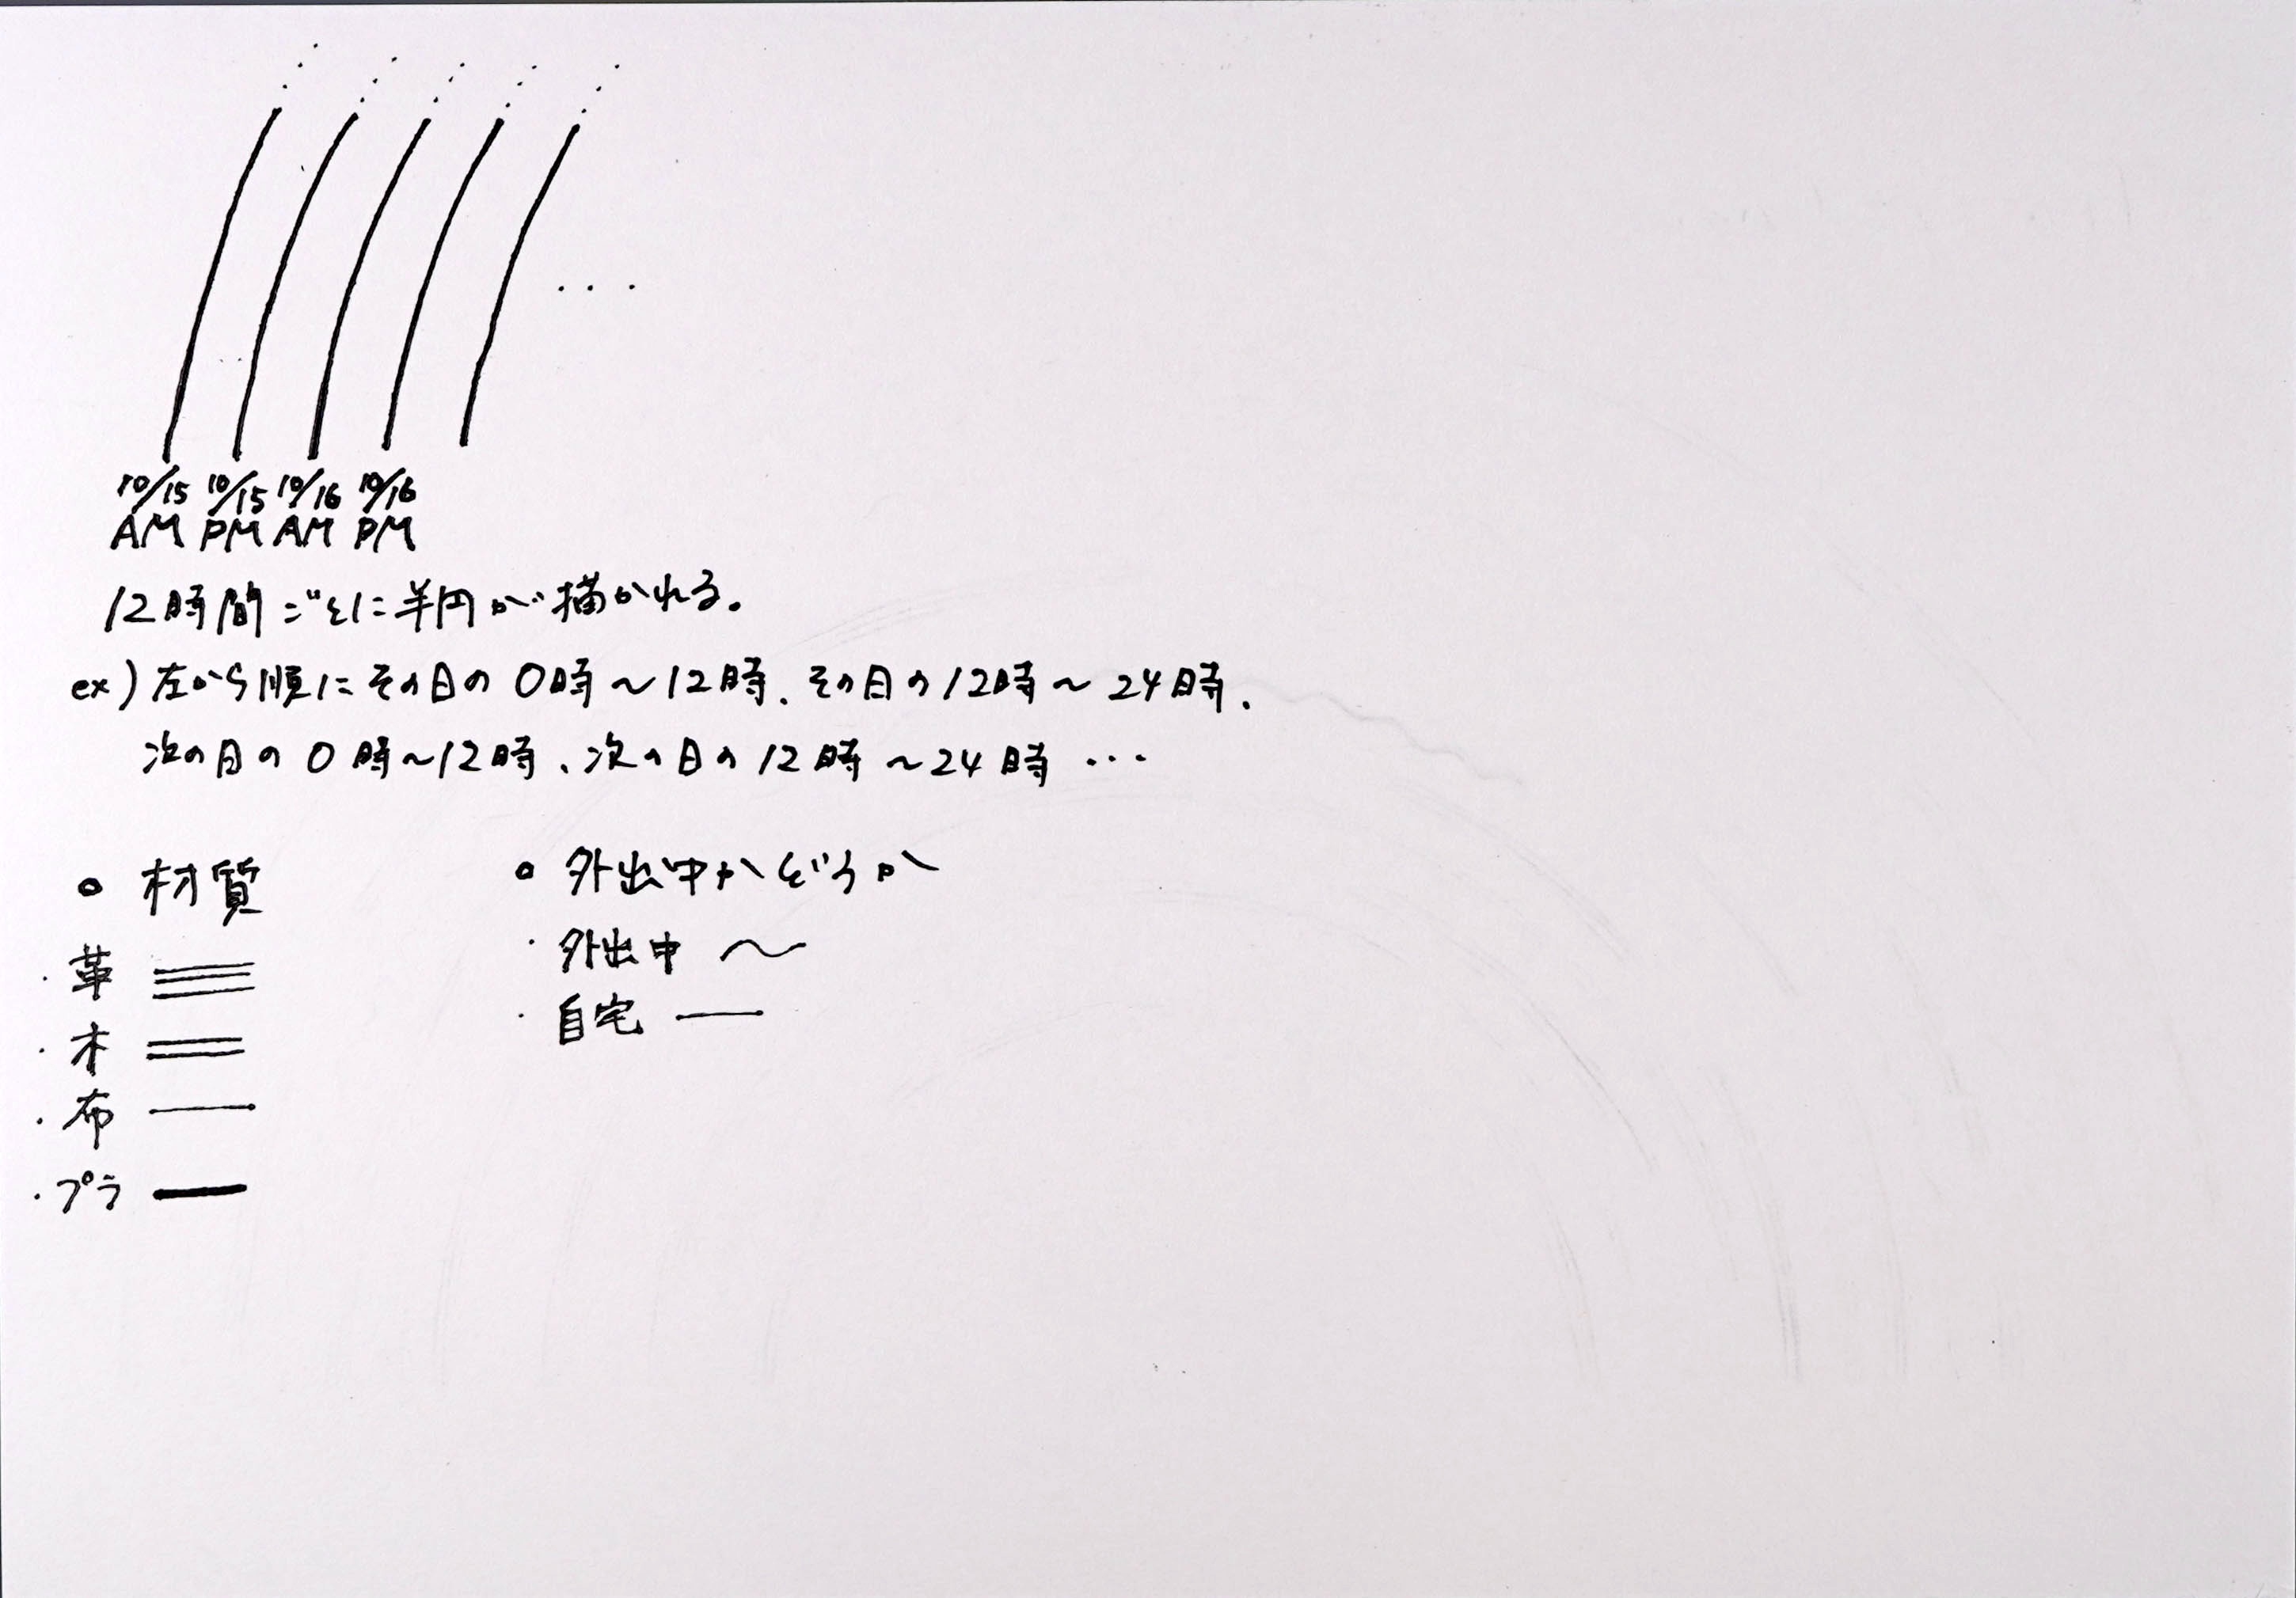 10/15 10/15 10/16 10/16
AM PM AM PM
12時間ごとに半円が描かれる。
ex) 左から順にその日の 0時～12時、その日の12時～24時、
次の日の 0時～12時、次の日の12時～24時 ・・・
○ 材質
・革
・木
・布
・プラ
○ 外出中かどうか
・外出中
・自宅